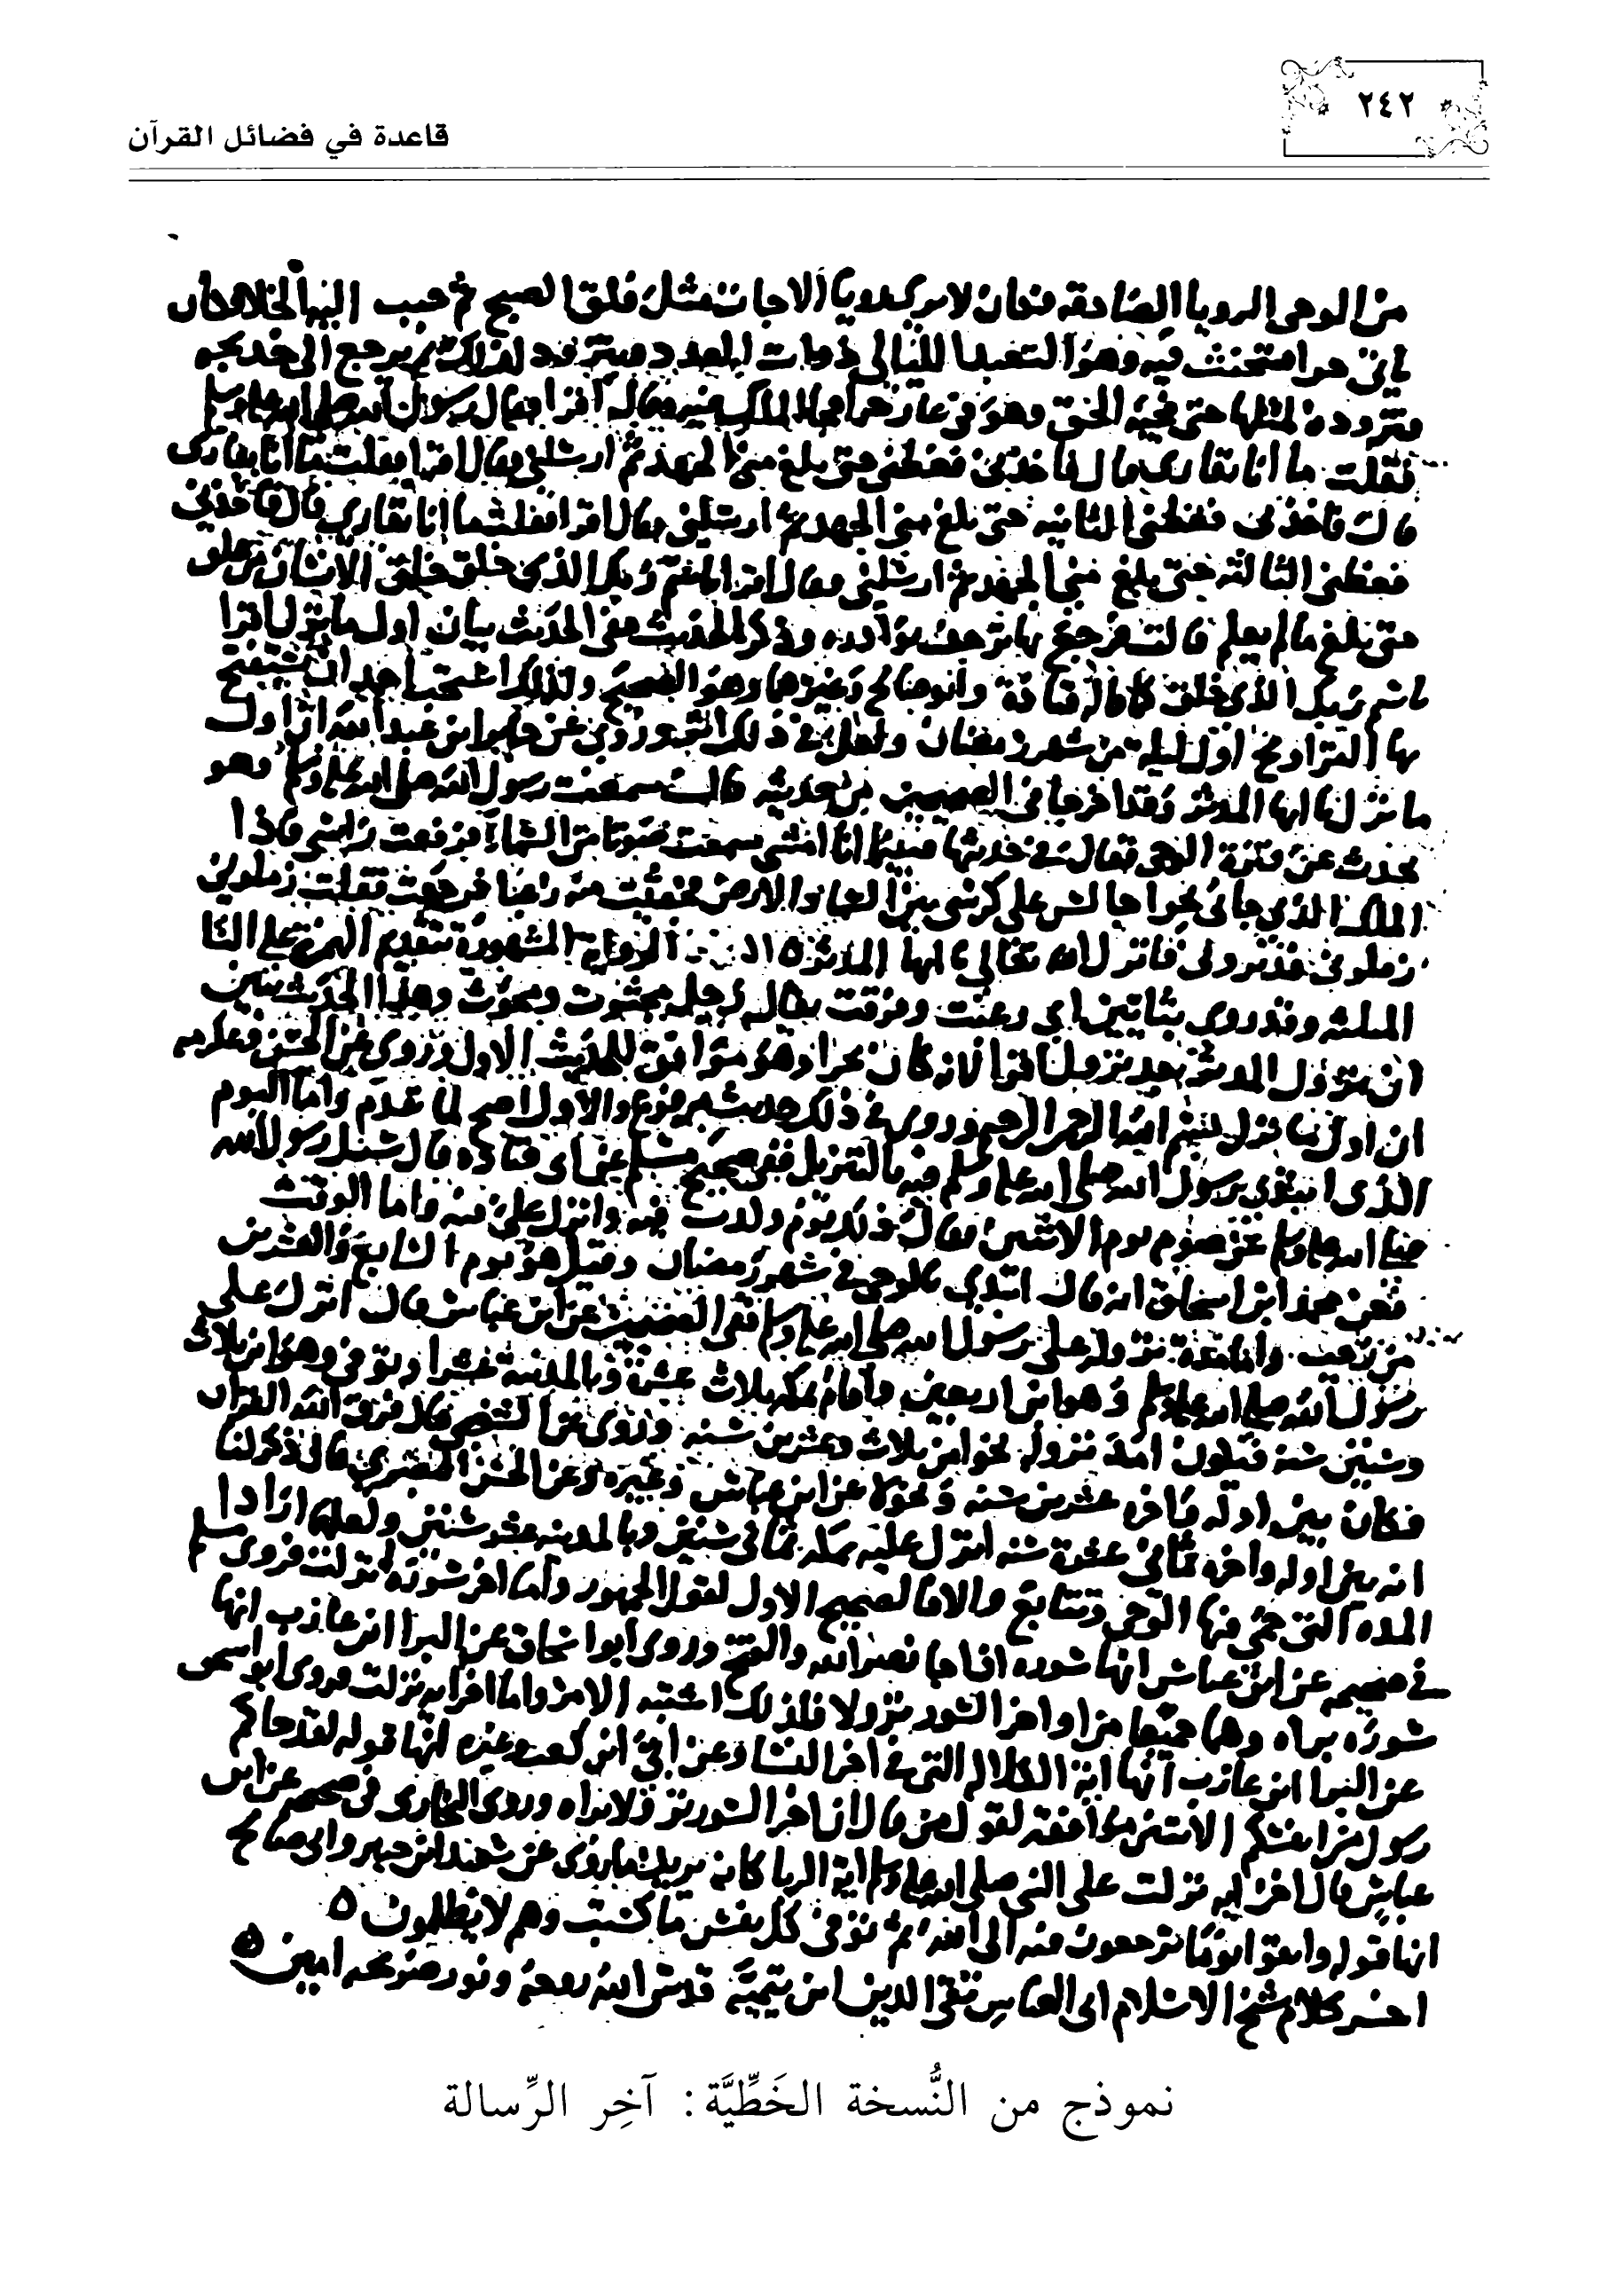 ٢٤٢
قاعدة في فضائل القرآن
من الوحى الرويا الصادقه فكان لا يرى رويا الا جات مثل فلق الصبح ثم حبب اليه الخلا فكان
ياتى حرا فيتحنث فيه وهو التعبد الليالى ذوات العدد ويتزود لذلك ثم يرجع الى خديجه
فتزوده لمثلها حتى فجيه الحق وهو فى غار حرا فجاه الملك فيه فقال له اقرا فقال رسول الله صلى الله عليه وسلم
فقلت ما انا بقارى قال فاخذنى فغطنى حتى بلغ منى الجهد ثم ارسلنى فقال اقرا فقلت ما انا بقارى
قال فاخذنى فغطنى الثانيه حتى بلغ منى الجهد ثم ارسلنى فقال اقرا فقلت ما انا بقارى قال فاخذنى
فغطنى الثالثه حتى بلغ منى الجهد ثم ارسلنى فقال اقرا باسم ربك الذى خلق خلق الانسان من علق
حتى بلغ مالم يعلم قالت فرجع بها ترجف بوادره وذكر الحديث ففى الحديث بيان اول ما نزل اقرا
باسم ربك الذى خلق كما قال قتادة وابو صالح وغيرهما وهو الصحيح ولذلك استحب احمد ان يستفتح
بها التراويح اول ليلة من شهر رمضان ذلك عن جابر ابن عبد الله ان اول
ما نزل يا ايها المدثر وقد اخرجا فى الصحيحين من حديثه قال سمعت رسول الله صلى الله عليه وسلم وهو
يحدث عن فترة الوحى فقال فى حديثه فبينما انا امشى سمعت صوتا من السماء فرفعت راسى فاذا
الملك الذى جانى بحرا جالس على كرسى بين السما والارض فجثثت منه رعبا فرجعت فقلت زملونى
زملونى فدثرونى فانزل الله تعالى يا ايها المدثر الرواية المشهورة بتقديم الهمزة على الثا
المثلثه وقد روى بثائين اى رعبت وفرقت يقال رجل مجثوث وهذا الحديث يبين
ان نزول المدثر بعد نزول اقرا لانه كان بحرا وهو موافق للحديث الاول وروى عن الحسن وعكرمه
ان اول ما نزل بسم الله الرحمن الرحيم وروى فى ذلك حديث مرفوع والاول اصح لما تقدم واما اليوم
الذى ابتدى رسول الله صلى الله عليه وسلم فيه بالتنزيل ففى صحيح مسلم عن ابى قتاده قال سئل رسول الله
صلى الله عليه وسلم عن صوم يوم الاثنين فقال ذلك يوم ولدت فيه وانزل على فيه واما الوقت
فعن محمد ابن اسحاق انه قال ابتدى بالوحى فى شهر رمضان وقيل هو يوم السابع والعشرين
من رجب واما مدة نزوله على رسول الله صلى الله عليه وسلم ففى الصحيحين عن ابن عباس قال انزل على
رسول الله صلى الله عليه وسلم وهو ابن اربعين واقام بمكه ثلاث عشرة وبالمدينة عشرا وتوفى وهو ابن ثلاث
وستين سنه فيكون امد نزوله نحوا من ثلاث وعشرين سنه وروى عن الشعبى قال فرق الله القران
فكان بين اوله واخره عشرين سنه ونحوه عن ابن عباس وغيره وعن الحسن البصرى قال ذكر لنا
انه بين اوله واخره ثمانى عشرة سنه انزل عليه بمكه ثمانى سنين وبالمدينه عشر سنين ولعلهم ارادوا
المده التى حمى فيها الوحى وتتابع والا فالصحيح الاول لقول الجمهور واما اخر سوره نزلت فروى مسلم
فى صحيحه عن ابن عباس انها سوره اذا جا نصر الله والفتح وروى ابو اسحاق عن البرا ابن عازب انها
سوره براه وهما جميعا من اواخر السور نزولا فلذلك اشتبه الامر واما اخر ايه نزلت فروى ابو اسحق
عن البرا ابن عازب انها اية الكلاله التى فى اخر النسا وعن ابى ابن كعب وغيره انها قوله لقد جاكم
رسول من انفسكم الايتين موافقه لقول من قال ان اخر السور نزولا براه وروى البخارى فى صحيحه عن ابن
عباس قال اخر ايه نزلت على النبى صلى الله عليه وسلم اية الربا كانه يريد ما روى عن سعيد ابن جبير وابى صالح
انها قوله واتقوا يوما ترجعون فيه الى الله ثم توفى كل نفس ما كسبت وهم لا يظلمون ه
اخر كلام شيخ الاسلام ابى العباس تقى الدين ابن تيمية قدس الله روحه ونور ضريحه امين ه
نموذج من النُّسخة الخَطِّيَّة: آخِر الرِّسالة